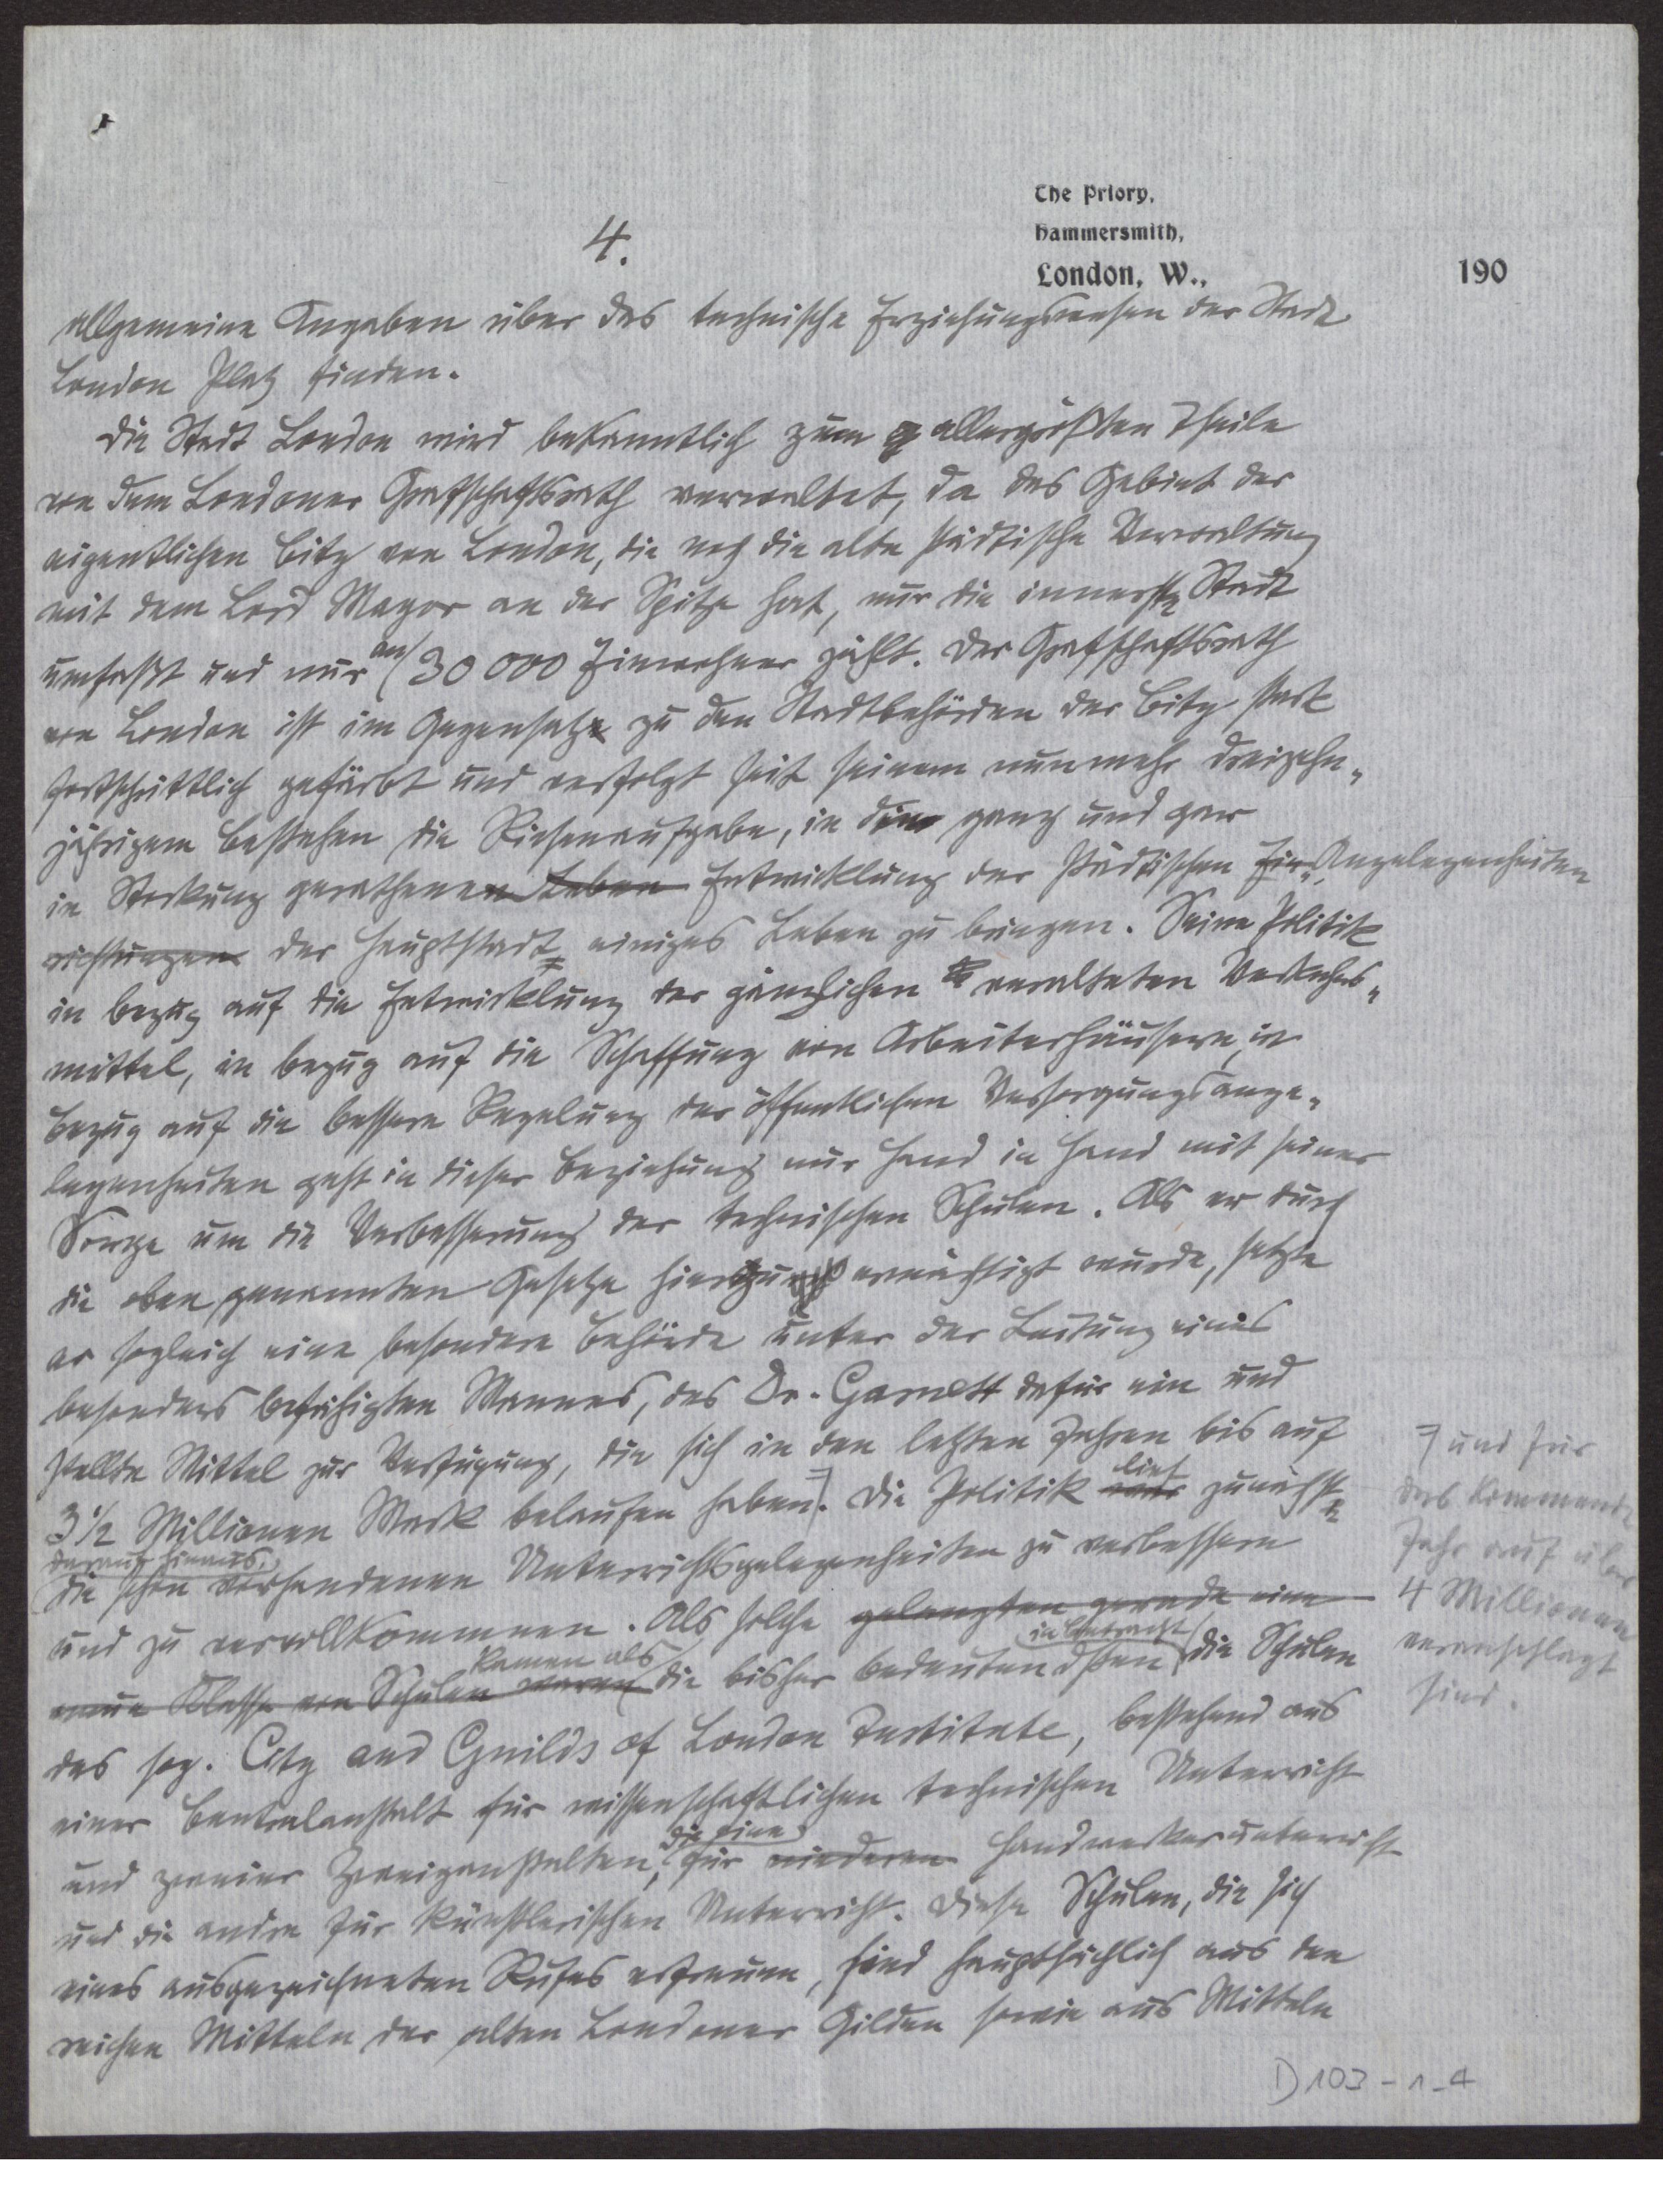 The Priory,
Hammersmith,
London, W.,
190
4.
allgemeine Angaben über das technische Erziehungswesen der Stadt
London Platz finden.
Die Stadt London wird bekanntlich zum allergrößten Theile
von dem Londoner Grafschaftsrath verwaltet, da das Gebiet der
eigentlichen City von London, die noch die alte städtische Verwaltung
mit dem Lord Mayor an der Spitze hat, nur die innerste Stadt
umfaßt und nur an 30 000 Einwohner zählt. Der Grafschaftsrath
von London ist im Gegensatz zu den Stadtbehörden der City stark
fortschrittlich gefärbt und verfolgt seit seinem nunmehr dreizehn-
jährigem Bestehen die Riesenaufgabe, in die ganz und gar
in Stockung gerathene Leben Entwicklung der städtischen Ein- Angelegenheiten
richtungen der Hauptstadt einiges Leben zu bringen. Seine Politik
in bezug auf die Entwicklung der gänzlichen veralteten Verkehrs-
mittel, in bezug auf die Schaffung von Arbeiterhäusern, in
bezug auf die bessere Regelung der öffentlichen Versorgungsange-
legenheiten geht in dieser Beziehung nur Hand in Hand mit seiner
Sorge um die Verbesserung der technischen Schulen. Als er durch
die oben genannten Gesetze hierzu ermächtigt wurde, setzte
er sogleich eine besondere Behörde unter der Leitung eines
besonders befähigten Mannes, des Dr. Garnett dafür ein und
stellte Mittel zur Verfügung, die sich in den letzten Jahren bis auf
3 1/2 Millionen Mark belaufen haben. Die Politik lief zunächst
darauf hinaus,
die schon vorhandenen Unterrichtsgelegenheiten zu verbessern
und zu vervollkommnen. Als solche gelangten gerade eine
neue Klasse von Schulen waren kamen als die bisher bedeutendsten in Betracht die Schulen
des sog. City and Guilds of London Institute, bestehend aus
einer Centralanstalt für wissenschaftlichen technischen Unterricht
und zweier Zweiganstalten, die eine für niederen Handwerkerunterricht
und die andre für künstlerischen Unterricht. Diese Schulen, die sich
eines ausgezeichneten Rufes erfreuen, sind hauptsächlich aus den
reichen Mitteln der alten Londoner Gilden sowie aus Mitteln
und für
das kommende
Jahr auf über
4 Millionen
veranschlagt
sind.
D 103-1-4